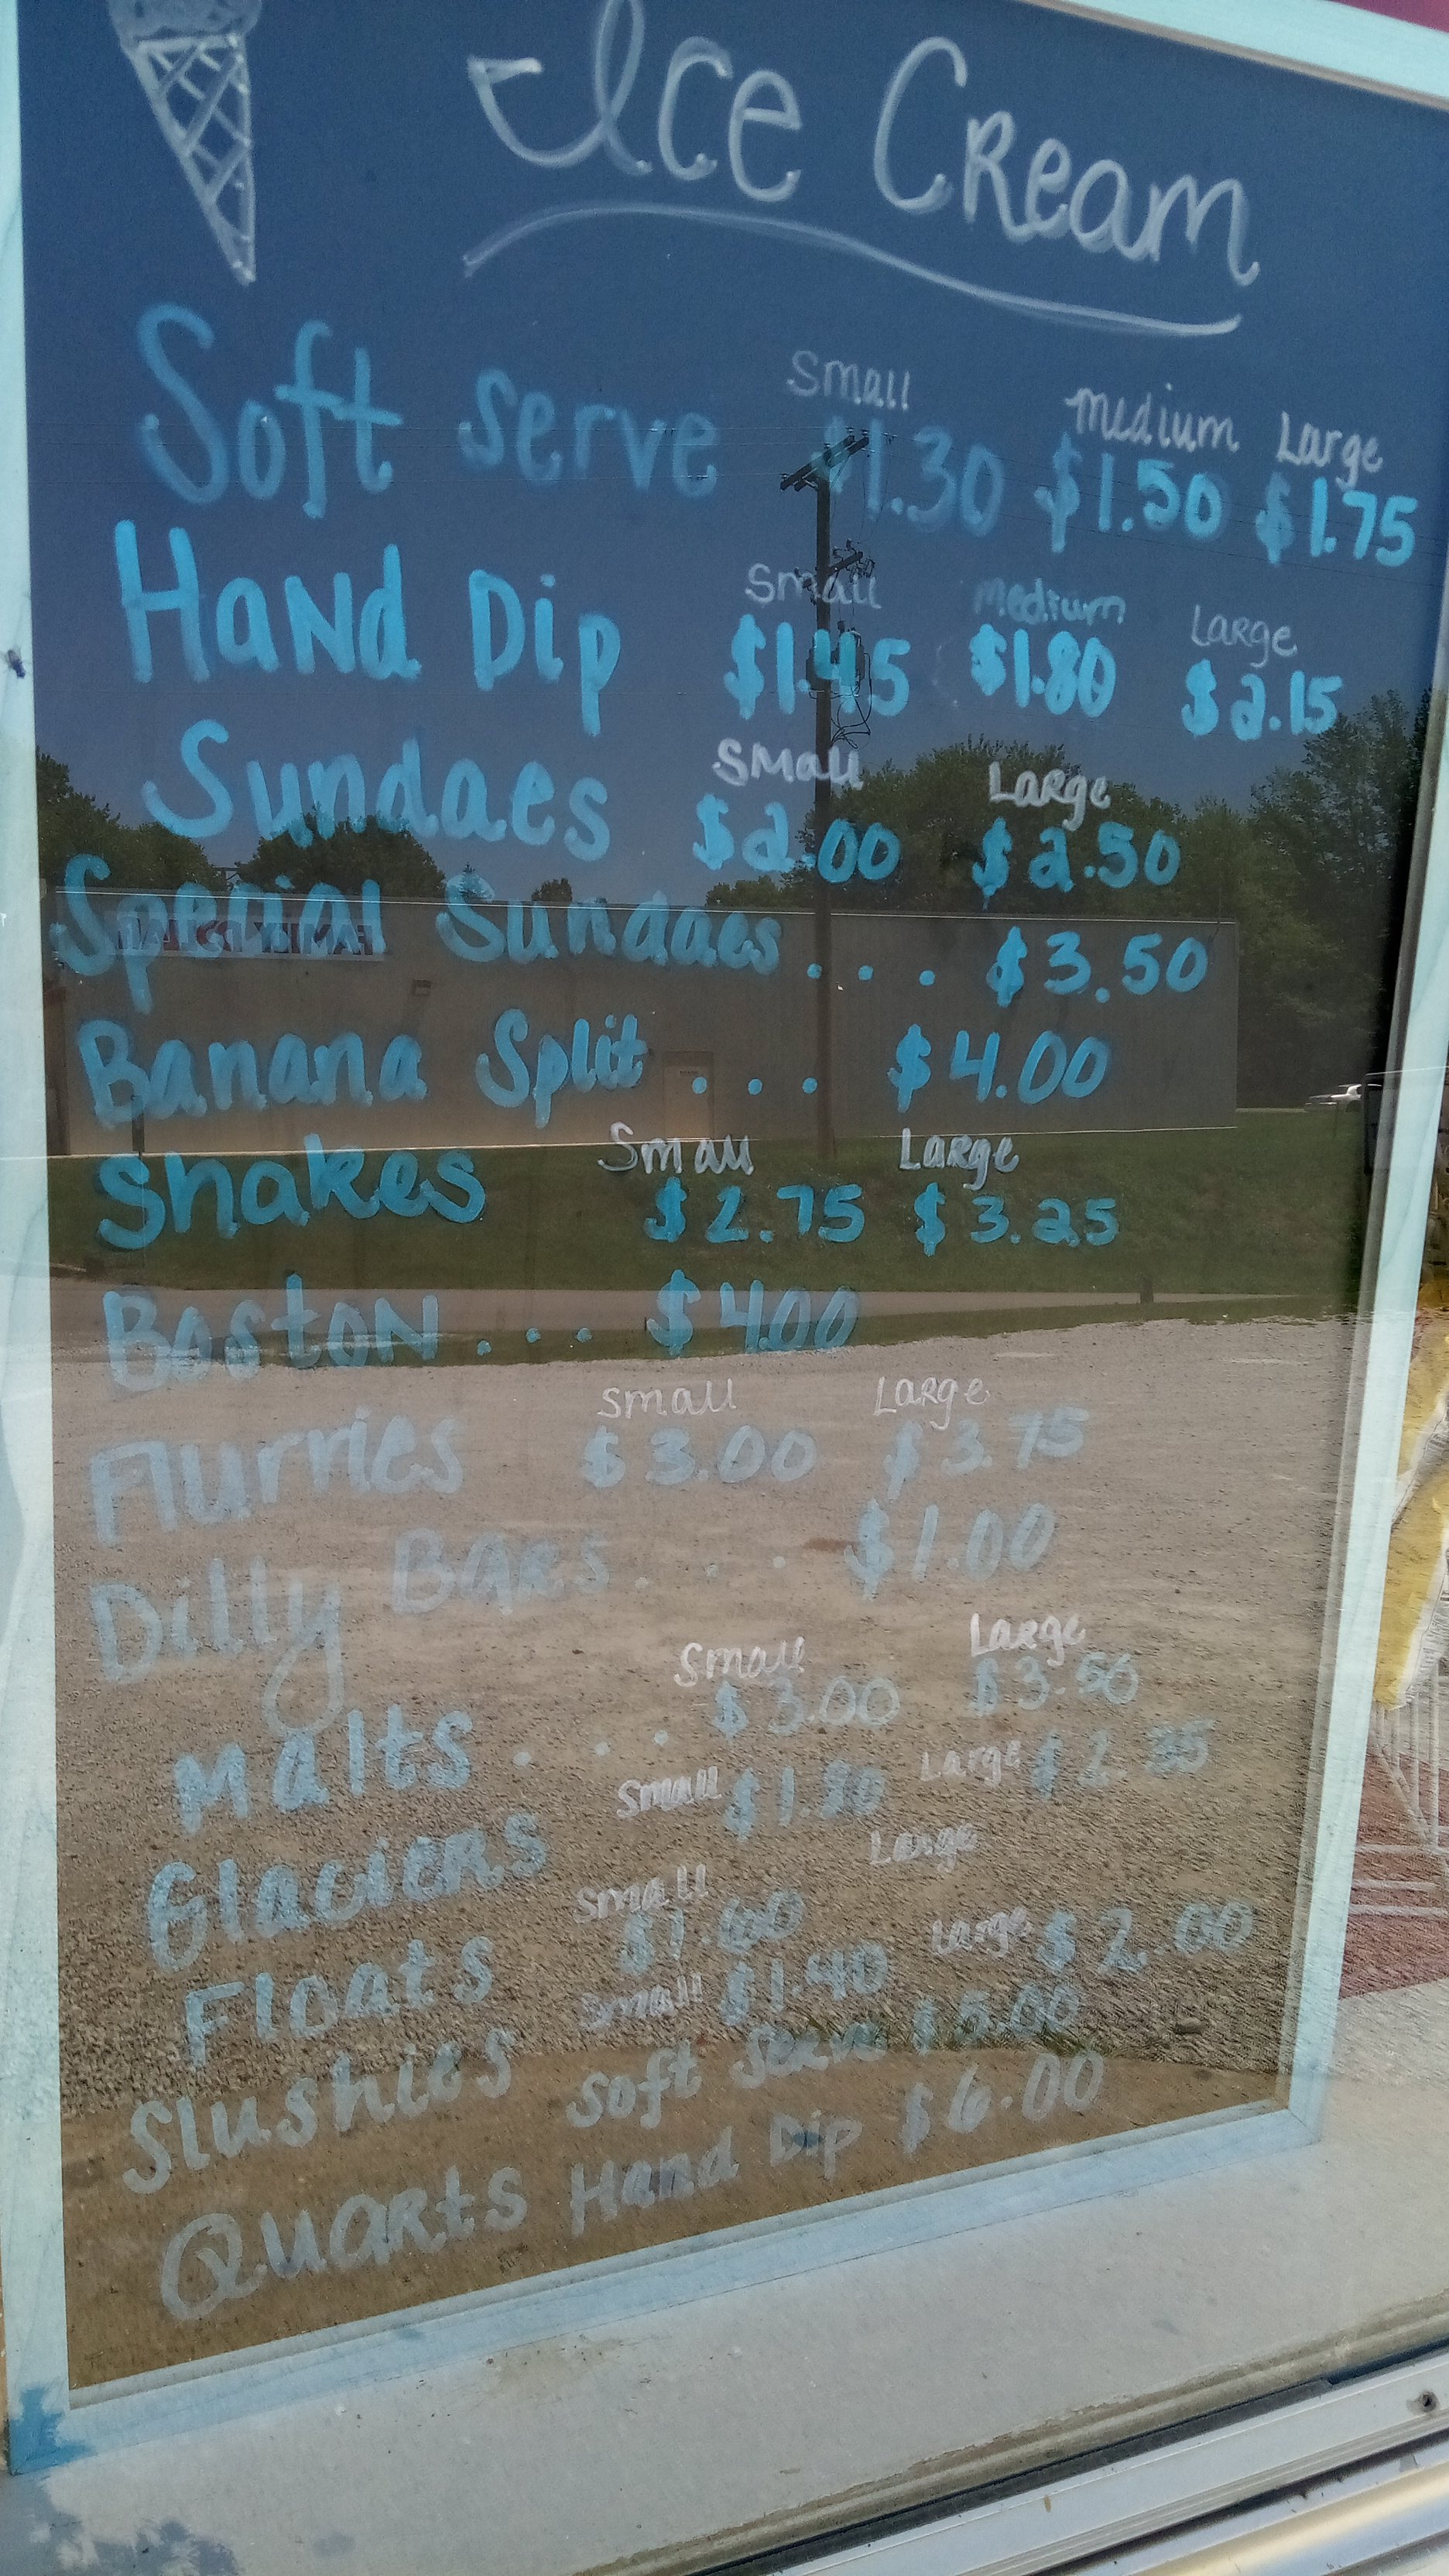 Ice Cream
Small medium Large
Soft serve $1.30 $1.50 $1.75
Small Medium Large
Hand Dip $1.45 $1.80 $2.15
Small Large
Sundaes $2.00 $2.50
Special Sundaes . . . $3.50
FAMILY DOLLAR
Banana Split . . . $4.00
Small Large
Shakes $2.75 $3.25
Boston . . . $4.00
Small Large
Flurries $3.00 $3.75
Dilly Bars . . . $1.00
Small Large
Malts . . . $3.00 $3.50
Glaciers Small Large
Small Large
Floats
Slushies Small $1.40 Large $2.00
Soft Serve
Quarts Hand Dip $6.00